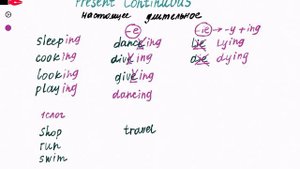 Present Continuous
настоящее длительное
-e
-ie → -y + ing
sleeping danceing lie lying
cooking diveing die dying
looking giveing
playing dancing
1слог
shop travel
run
swim